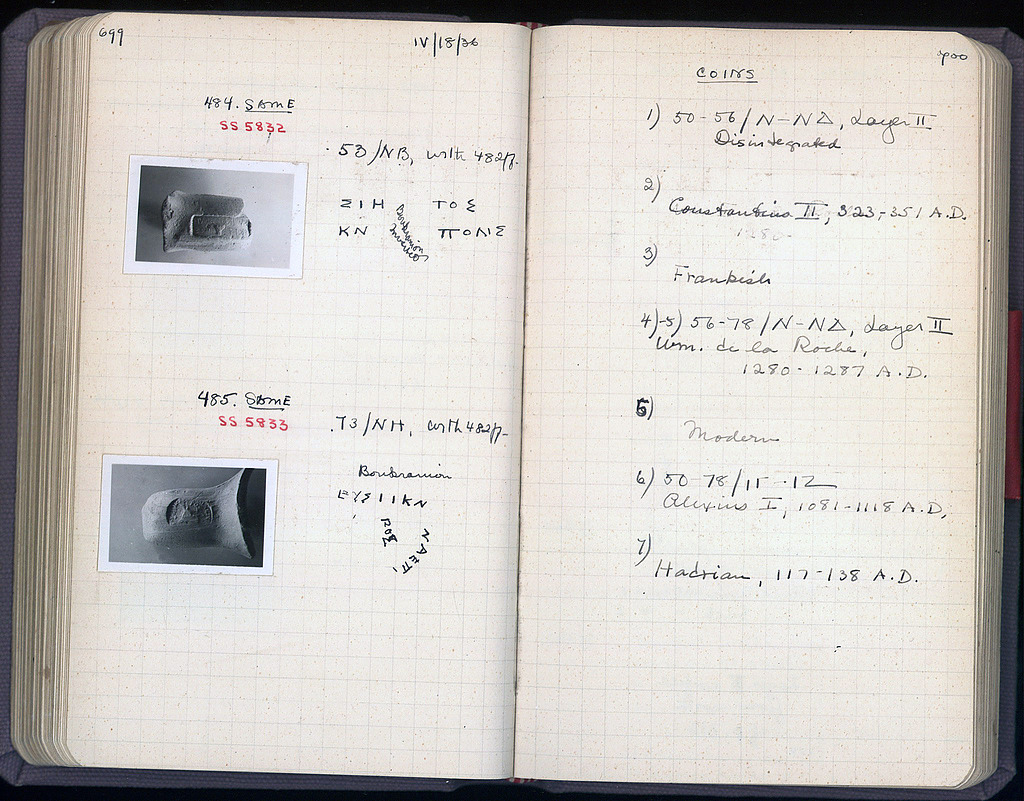 699
IV/18/36
484. SAME
SS 5832
53/NB, with 482ff.
ΣΙΗ ΤΟΣ
Boukranion
inverted
ΚΝ ΠΟΛΙΣ
485. SAME
SS 5833
73/NH, with 482ff.
Boukranion
ΕΥΣΙΙΚΝ
ΝΑΕΠΙ
700
COINS
1) 50-56/N-NΔ, Layer II
Disintegrated
2)
Constantius II, 323-351 A.D.
1280-
3)
Frankish
4)-5) 56-78/N-NΔ, Layer II
Wm. de la Roche,
1280-1287 A.D.
5)
Modern
6) 50-78/11-12
Alexius I, 1081-1118 A.D.
7)
Hadrian, 117-138 A.D.